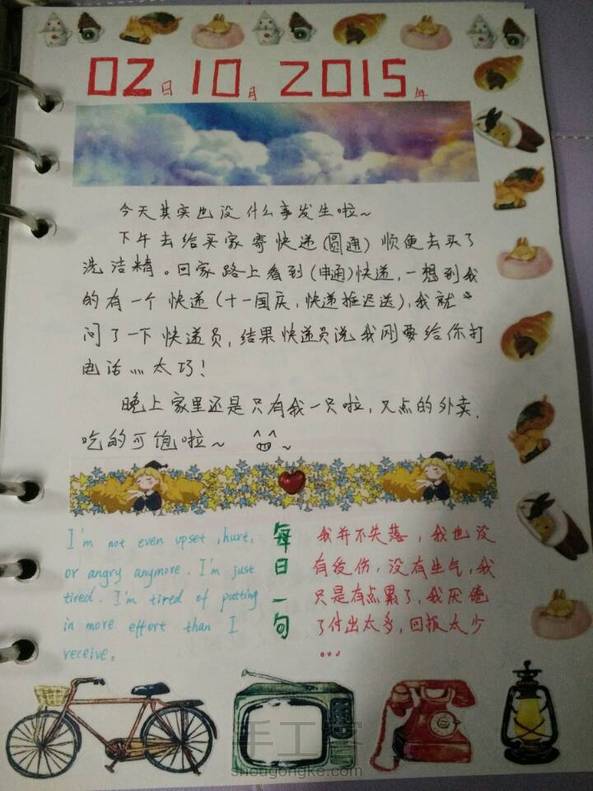 02日10月2015年
今天其实也没什么事发生啦~
下午去给买家寄快递(圆通)顺便去买了
洗洁精。回家路上看到(申通)快递,一想到我
的有一个快递(十一国庆,快递推迟送),我就
问了一下快递员,结果快递员说我刚要给你打
电话灬太巧!
晚上家里还是只有我一只啦,又点的外卖,
吃的可饱啦~ ~
I'm not even upset, hurt,
or angry anymore. I'm just
tired. I'm tired of putting
in more effort than I
receive。
每日一句
我并不失落,我也没
有受伤,没有生气,我
只是有点累了,我厌倦
了付出太多,回报太少
...
手工客
shougongke.com